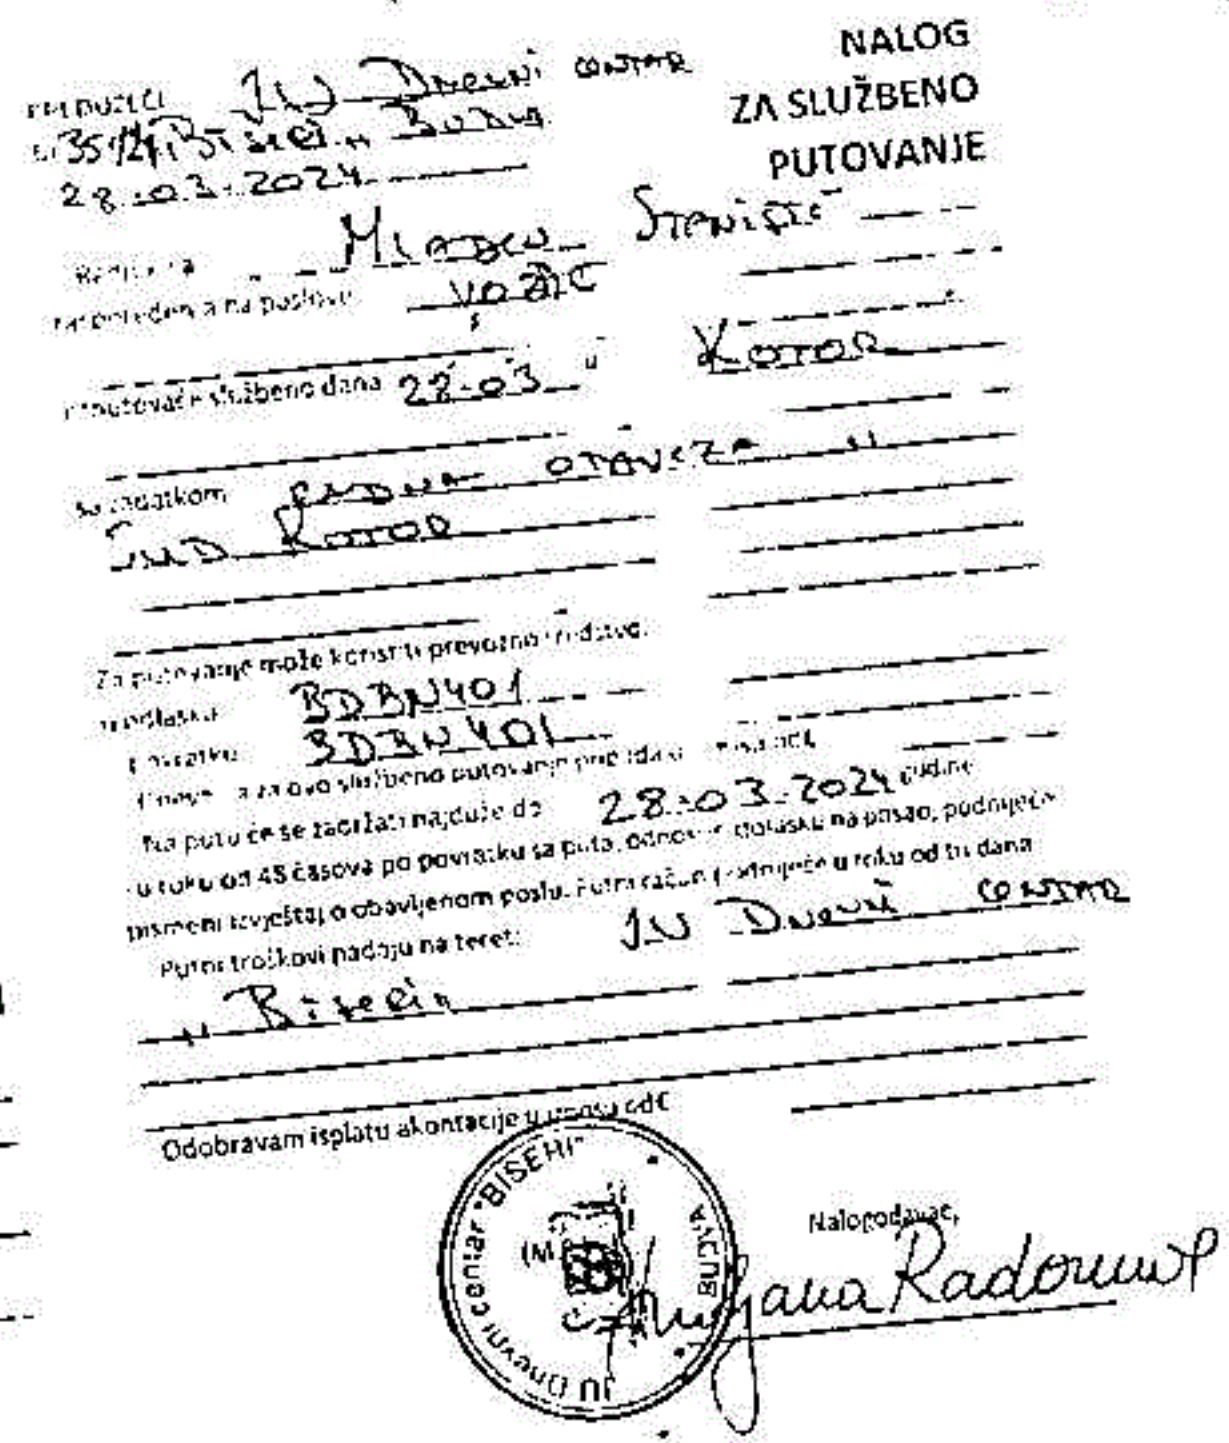 NALOG
ZA SLUŽBENO
PUTOVANJE
PREDUZEĆE JU Dnevni centar
35/24 "Biseri" Budva
28.03.2024
Mladen Stanišić
raspoređen a na poslove vozač
otputovaće službeno dana 28.03 u Kotor
sa zadatkom
Sud Kotor
Za putovanje može koristiti prevozno sredstvo:
u odlasku BDBN401
u povratku BDBN401
za ovo službeno putovanje
Na putu će se zadržati najduže do 28.03.2024 godine
u roku od 48 časova po povratku sa puta, odnosno dolasku na posao, podnijeće
pismeni izvještaj o obavljenom poslu. Putni račun podnijeće u roku od tri dana
Putni troškovi padaju na teret: JU Dnevni centar
"Biseri"
Odobravam isplatu akontacije u iznosu od €
JU Dnevni centar "BISERI"
BUDVA
Nalogodavac,